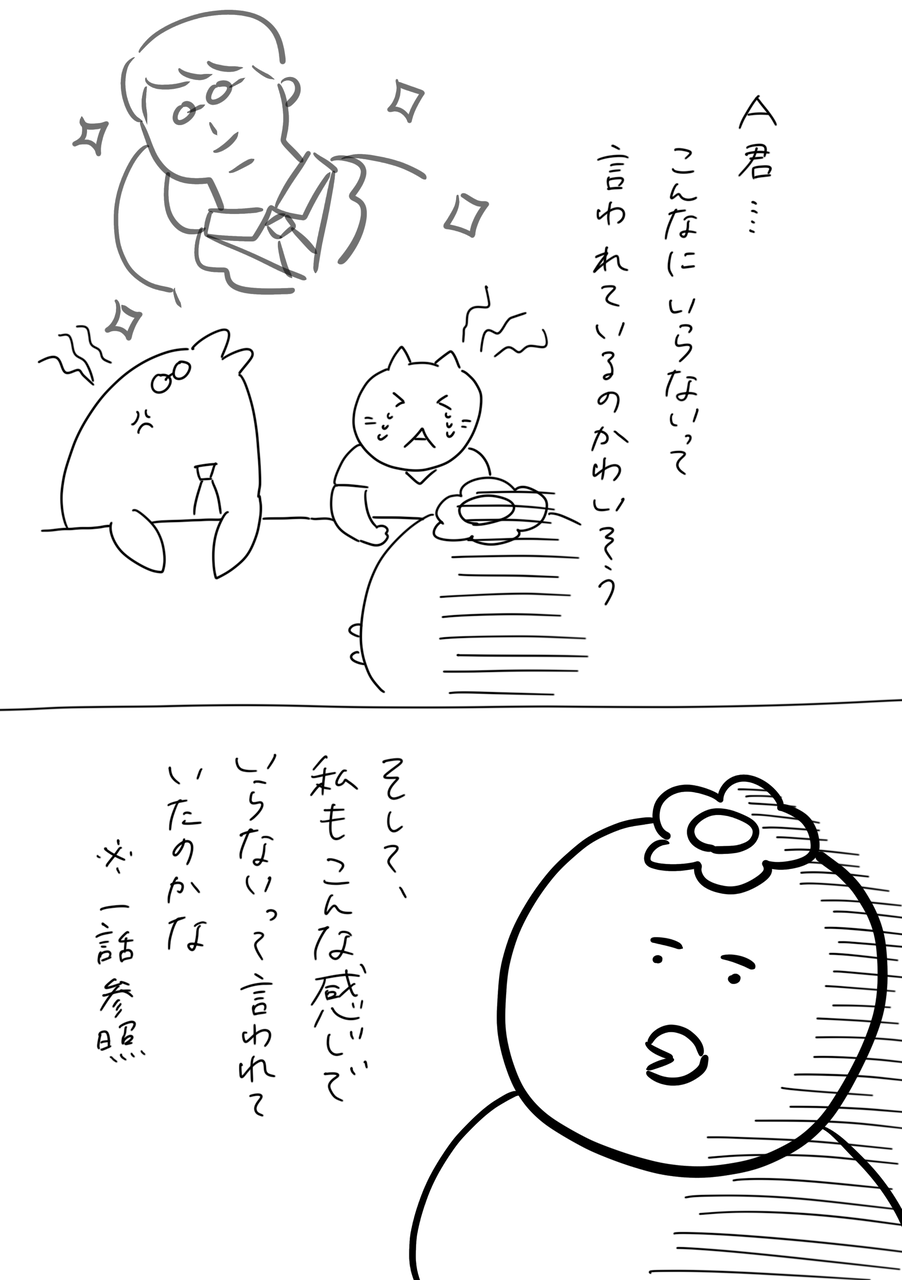 A君…
こんなにいらないって
言われているのかわいそう
そして、
私もこんな感じで
いらないって言われて
いたのかな
※一話参照